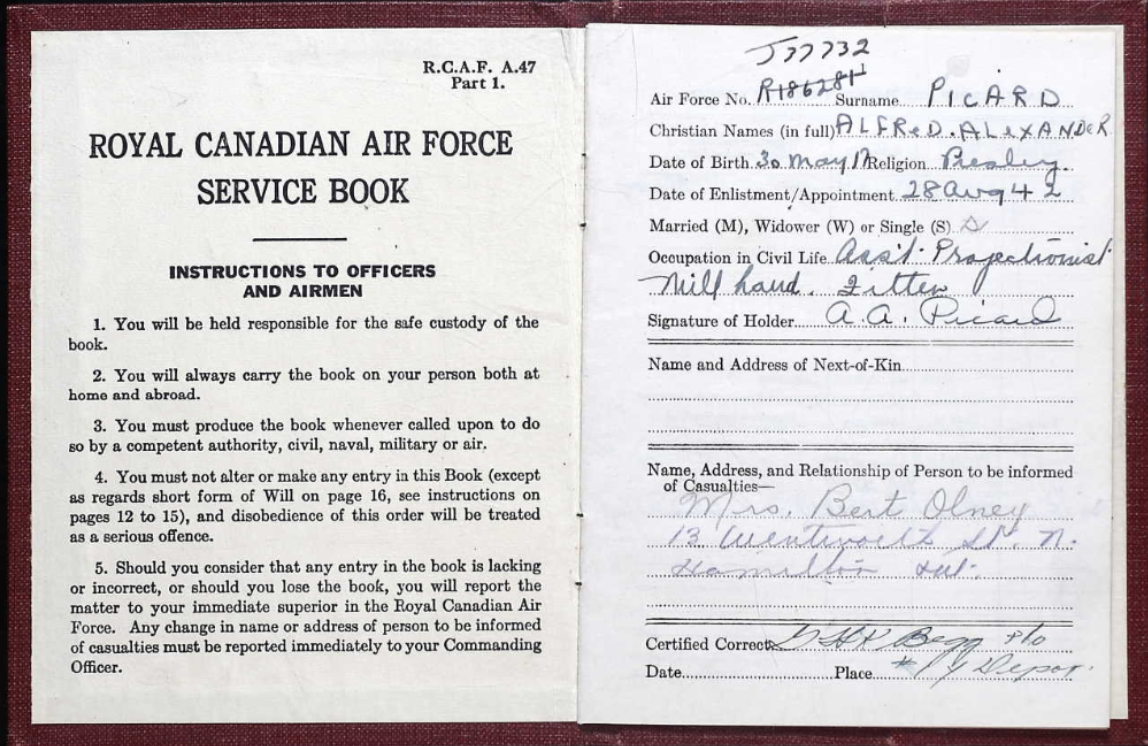 R.C.A.F. A.47
Part 1.
ROYAL CANADIAN AIR FORCE
SERVICE BOOK
INSTRUCTIONS TO OFFICERS
AND AIRMEN
1. You will be held responsible for the safe custody of the
book.
2. You will always carry the book on your person both at
home and abroad.
3. You must produce the book whenever called upon to do
so by a competent authority, civil, naval, military or air.
4. You must not alter or make any entry in this Book (except
as regards short form of Will on page 16, see instructions on
pages 12 to 15), and disobedience of this order will be treated
as a serious offence.
5. Should you consider that any entry in the book is lacking
or incorrect, or should you lose the book, you will report the
matter to your immediate superior in the Royal Canadian Air
Force. Any change in name or address of person to be informed
of casualties must be reported immediately to your Commanding
Officer.
J77732
Air Force No. R186281 Surname PICARD
Christian Names (in full) ALFReD. ALeXANDeR
Date of Birth 30 May 17 Religion
Date of Enlistment/Appointment 28 Aug 42
Married (M), Widower (W) or Single (S) S
Occupation in Civil Life Ass't. Projectionist
Mill hand. Fitter
Signature of Holder A.A. Picard
Name and Address of Next-of-Kin
Name, Address, and Relationship of Person to be informed
of Casualties—
Mrs. Bert Olney
13 Wentworth St. N.
Hamilton Ont.
Certified Correct Begg F/O
Date Place Depot.